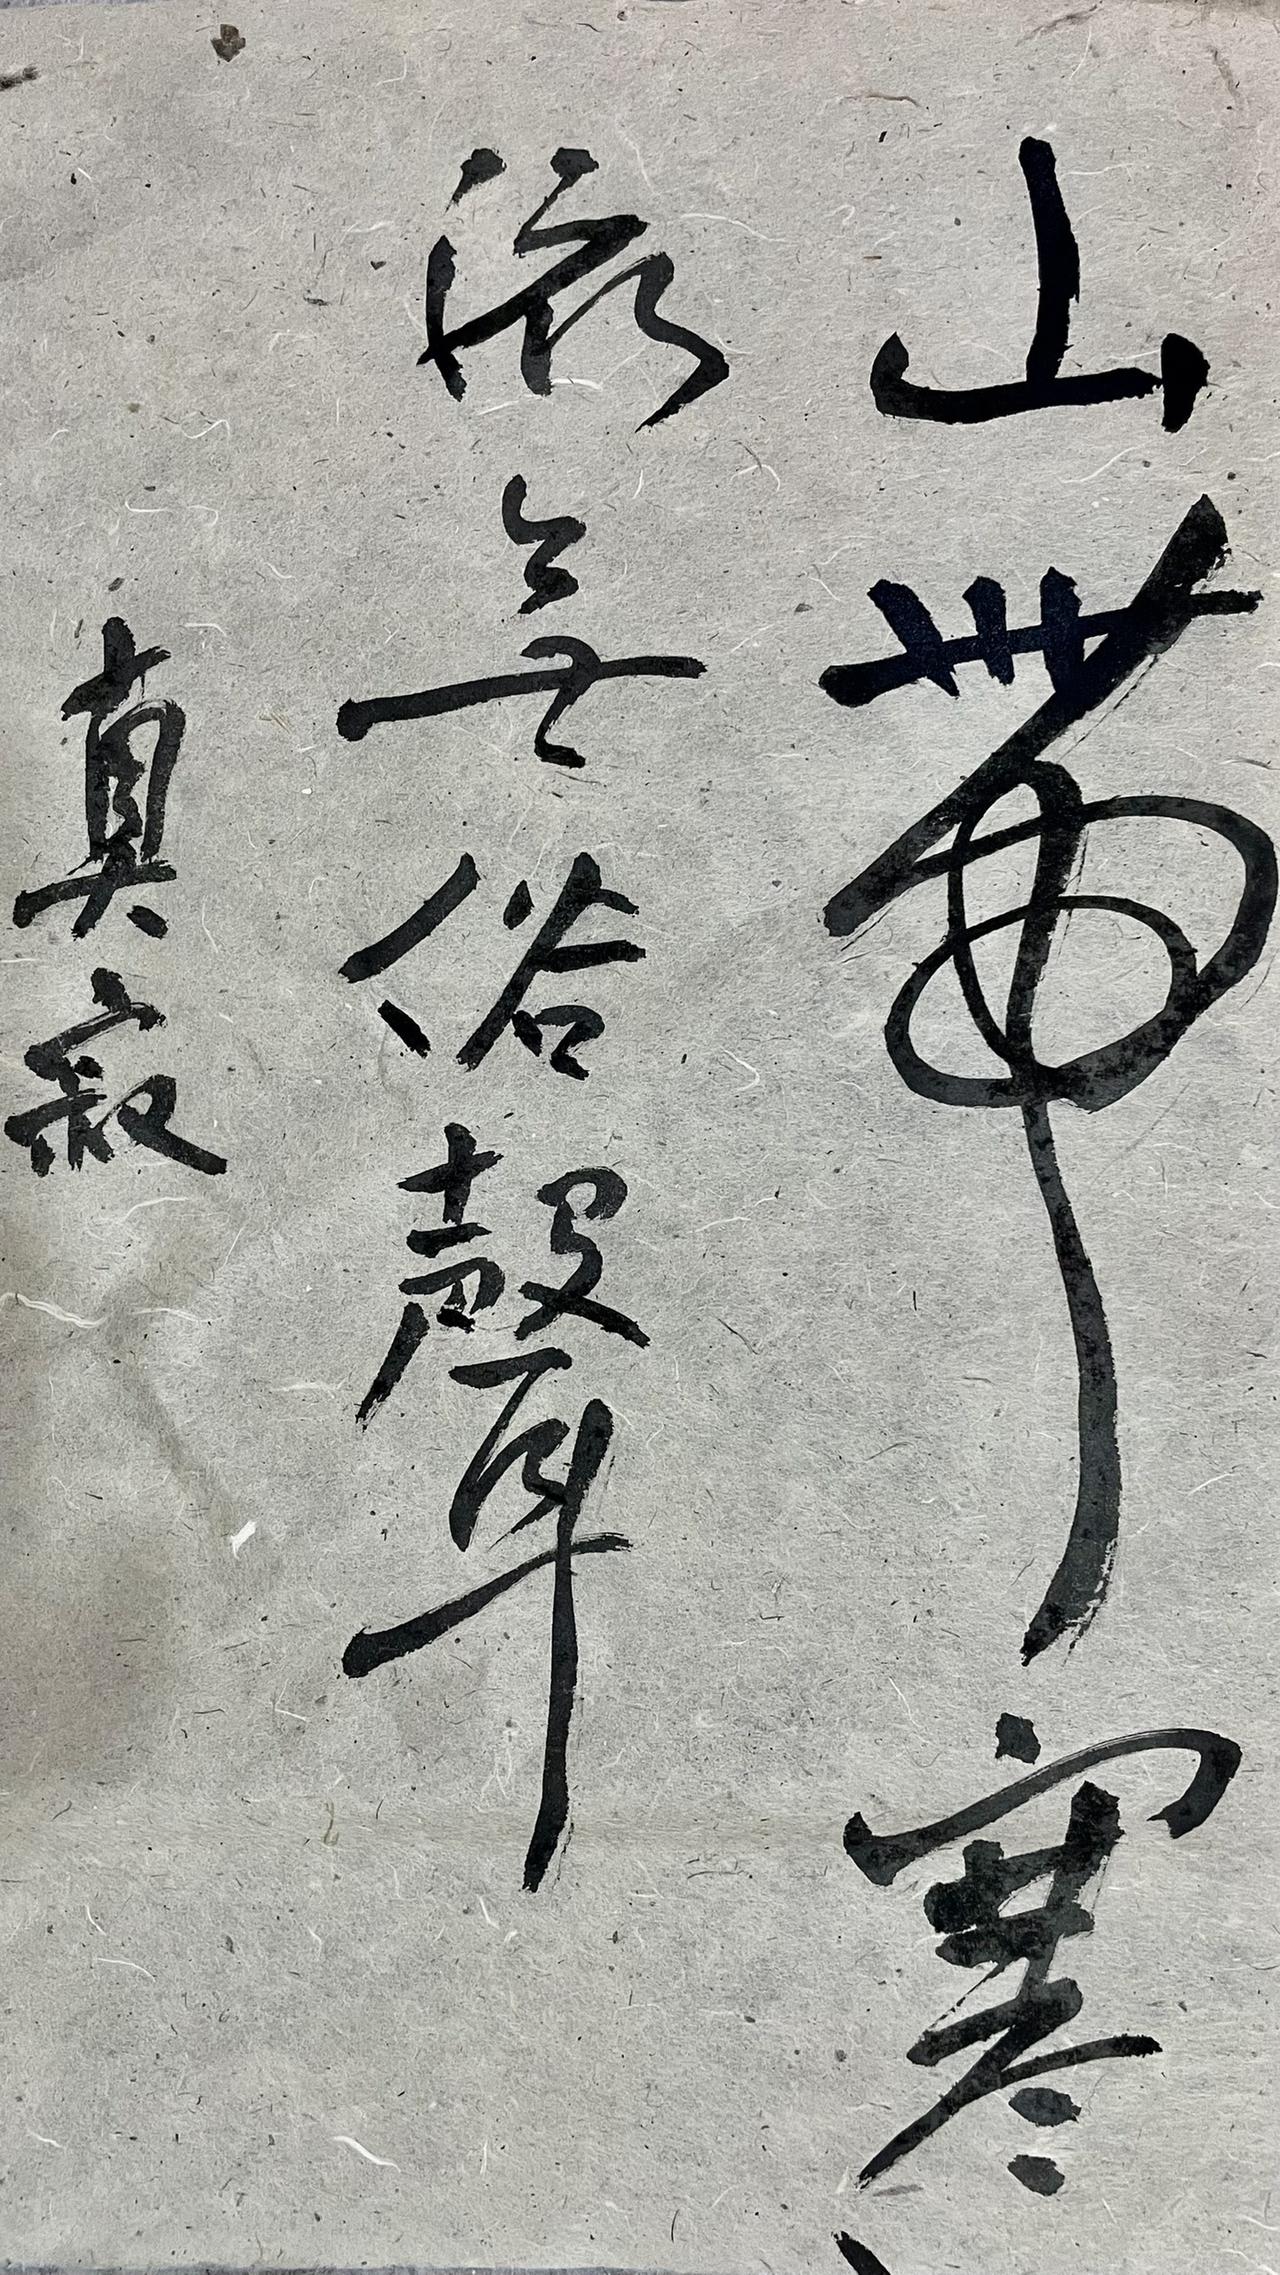 山帶寒
流無俗聲
真寂